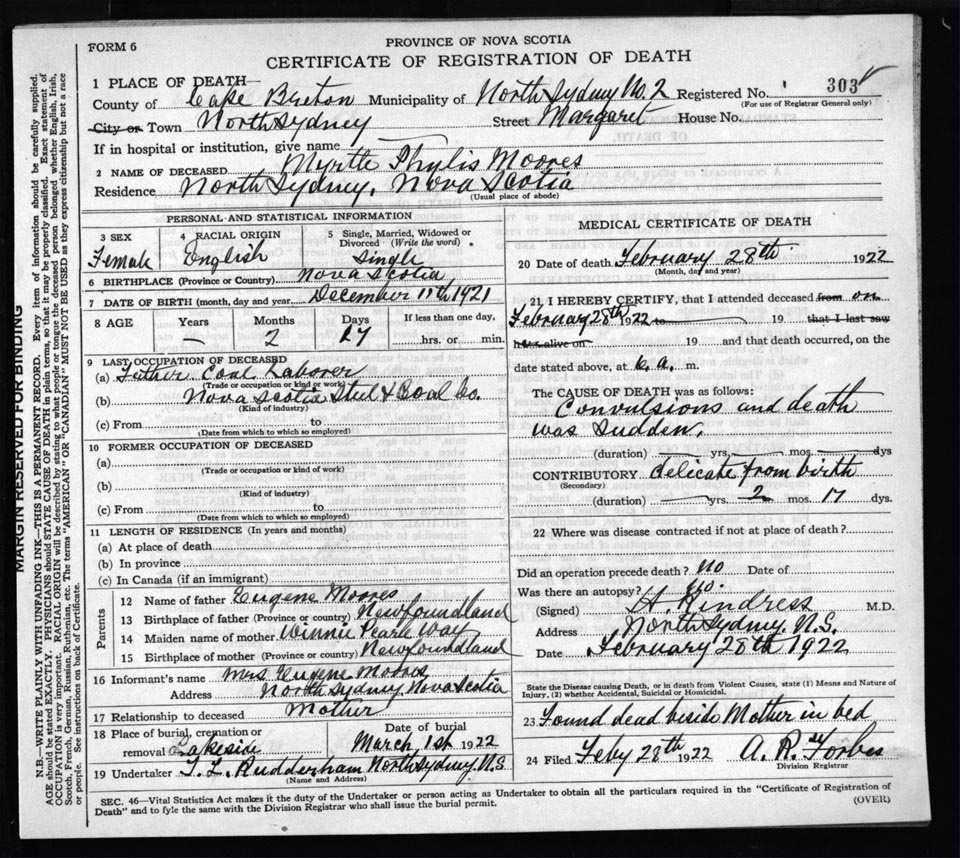 FORM 6
PROVINCE OF NOVA SCOTIA
CERTIFICATE OF REGISTRATION OF DEATH
1 PLACE OF DEATH—
County of Cape Breton Municipality of North Sydney No. 2 Registered No. 303
(For use of Registrar General only)
City or Town North Sydney Street Margaret House No.
If in hospital or institution, give name
2 NAME OF DECEASED Myrtle Phylis Moores
Residence North Sydney, Nova Scotia
(Usual place of abode)
PERSONAL AND STATISTICAL INFORMATION
3 SEX Female
4 RACIAL ORIGIN English
5 Single, Married, Widowed or Divorced (Write the word) Single
6 BIRTHPLACE (Province or Country) Nova Scotia
7 DATE OF BIRTH (month, day and year) December 11th 1921
8 AGE Years Months Days If less than one day,
— 2 17 hrs. or min.
9 LAST OCCUPATION OF DECEASED
(a) Father Coal Laborer
(Trade or occupation or kind of work)
(b) Nova Scotia Steel & Coal Co.
(Kind of industry)
(c) From to
(Date from which to which so employed)
10 FORMER OCCUPATION OF DECEASED
(a)
(Trade or occupation or kind of work)
(b)
(Kind of industry)
(c) From to
(Date from which to which so employed)
11 LENGTH OF RESIDENCE (In years and months)
(a) At place of death
(b) In province
(c) In Canada (if an immigrant)
Parents
12 Name of father Eugene Moores
13 Birthplace of father (Province or country) Newfoundland
14 Maiden name of mother Winnie Pearl Way
15 Birthplace of mother (Province or country) Newfoundland
16 Informant's name Mrs Eugene Moores
Address North Sydney Nova Scotia
17 Relationship to deceased Mother
18 Place of burial, cremation or removal Lakeside
Date of burial March 1st 1922
19 Undertaker T. L. Rudderham North Sydney N.S.
(Name and Address)
MEDICAL CERTIFICATE OF DEATH
20 Date of death February 28th 1922
(Month, day and year)
21 I HEREBY CERTIFY, that I attended deceased from on
February 28th 1922 to 19 that I last saw
h alive on 19 and that death occurred, on the
date stated above, at 6 a. m.
The CAUSE OF DEATH was as follows:
Convulsions and death
was sudden.
(duration) yrs. mos. dys
CONTRIBUTORY delicate from birth
(Secondary)
(duration) yrs. 2 mos. 17 dys.
22 Where was disease contracted if not at place of death?
Did an operation precede death? No Date of
Was there an autopsy? No.
(Signed) H. Kindress M.D.
Address North Sydney, N.S.
Date February 28th 1922
State the Disease causing Death, or in death from Violent Causes, state (1) Means and Nature of Injury, (2) whether Accidental, Suicidal or Homicidal.
23 Found dead beside Mother in bed
24 Filed Feby 28th 1922 A. R. Forbes
Division Registrar
SEC. 46—Vital Statistics Act makes it the duty of the Undertaker or person acting as Undertaker to obtain all the particulars required in the "Certificate of Registration of
Death" and to fyle the same with the Division Registrar who shall issue the burial permit.
(OVER)
MARGIN RESERVED FOR BINDING
N.B.—WRITE PLAINLY WITH UNFADING INK—THIS IS A PERMANENT RECORD. Every item of information should be carefully supplied.
AGE should be stated EXACTLY. PHYSICIANS should STATE CAUSE OF DEATH in plain terms, so that it may be properly classified. Exact statement of
OCCUPATION is very important. RACIAL ORIGIN will be described by stating to what people or tongue the deceased person belonged, whether English, Irish,
Scotch, French, German, Russian, Ruthenian, etc. The terms "AMERICAN" OR "CANADIAN" MUST NOT BE USED as they express citizenship but not a race
or people. See instructions on back of Certificate.